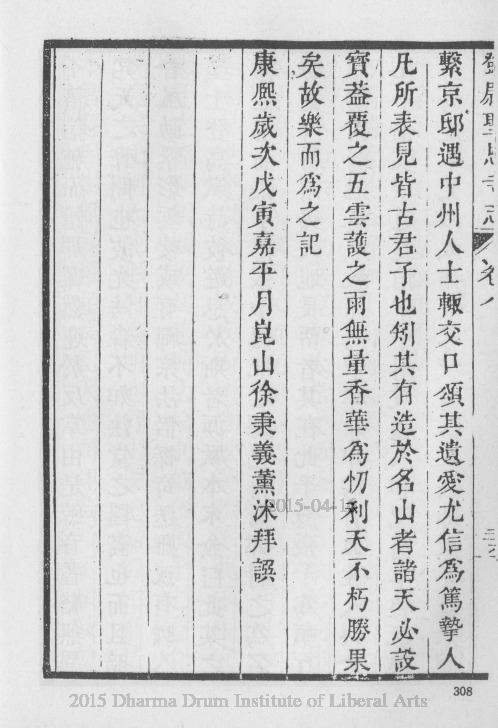 鄧尉聖恩寺志
卷八
繫京邸遇中州人士輒交口頌其遺愛尤信為篤摯人
凡所表見皆古君子也矧其有造於名山者諸天必設
寶葢覆之五雲護之雨無量香華為忉利天不朽勝果
矣故樂而為之記
康熈歲次戊寅嘉平月崑山徐秉義薰沐拜譔
2015-04-15
308
2015 Dharma Drum Institute of Liberal Arts